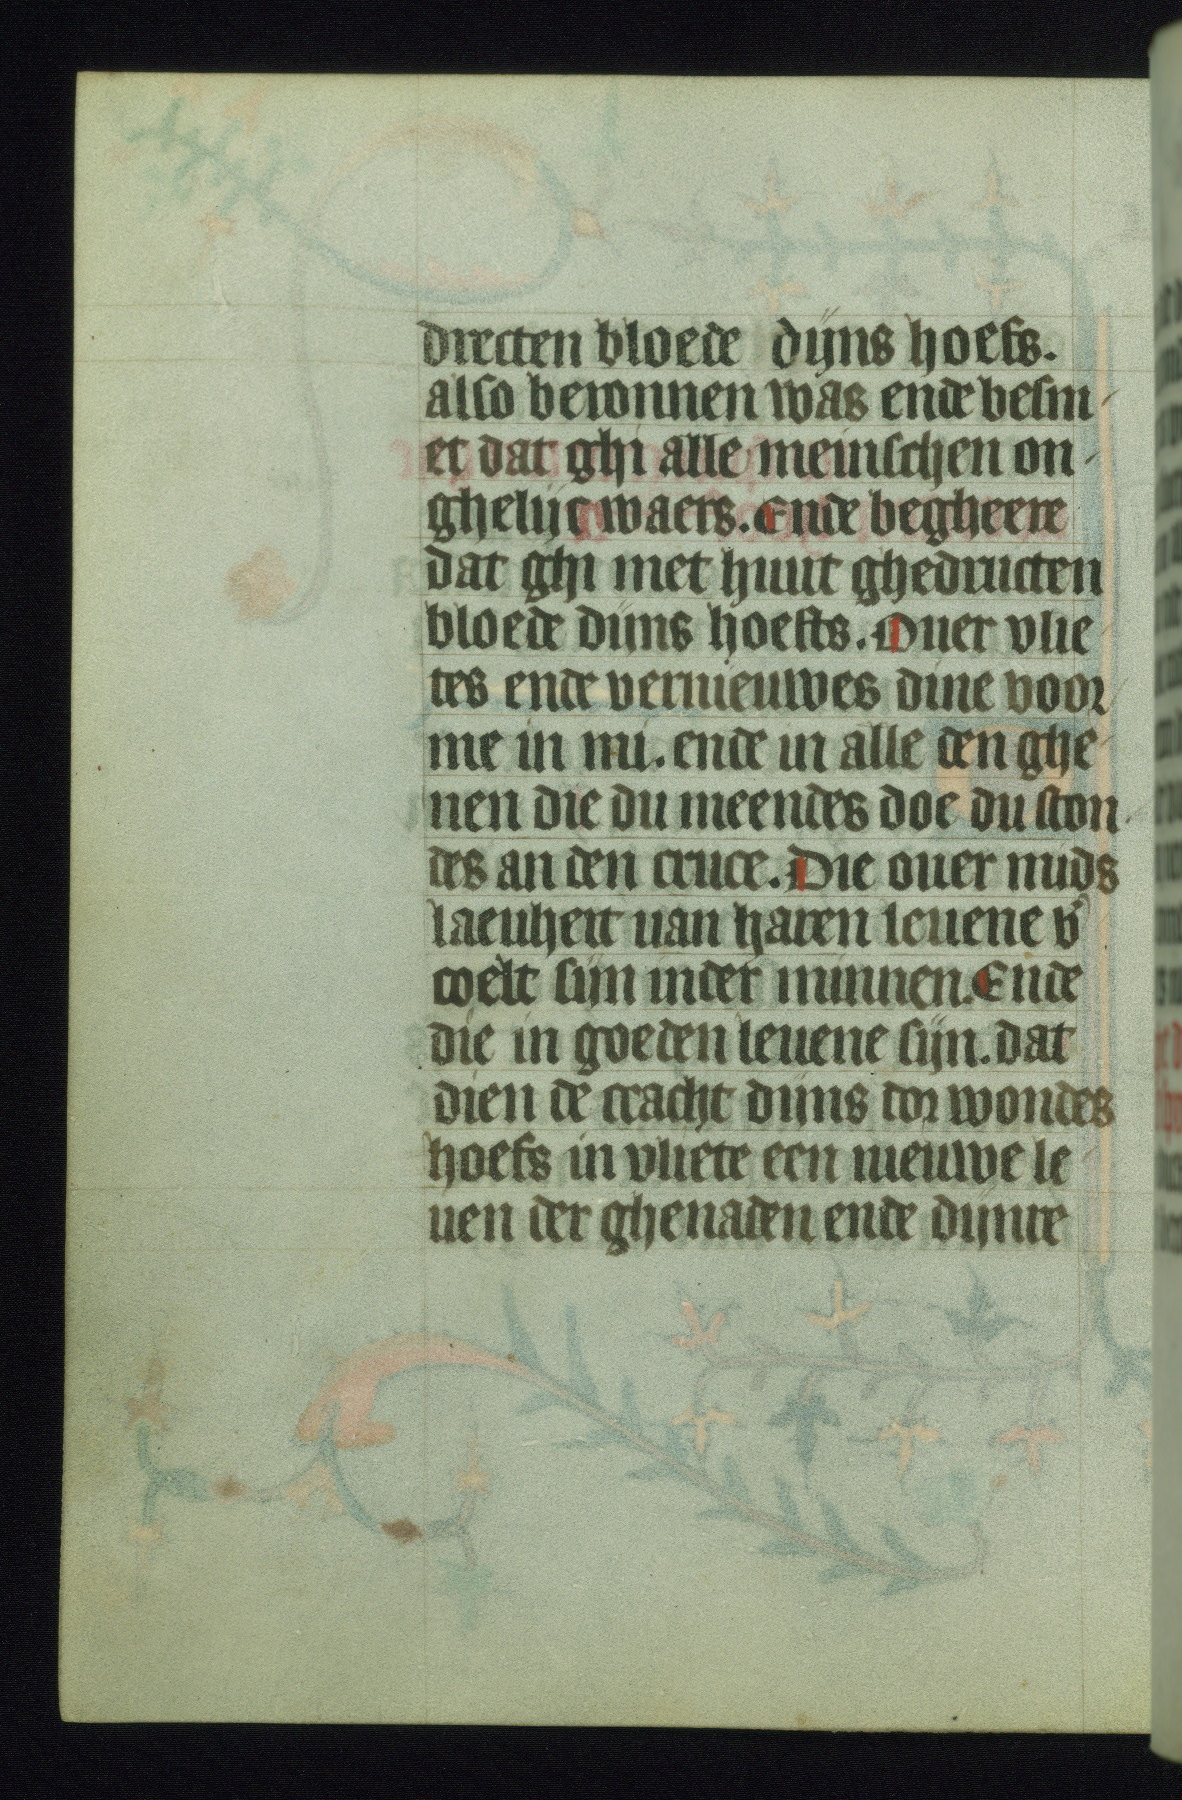 drecten bloede dijns hoefs.
also beronnen was ende besm-
et dat ghi alle meinschen on-
ghelijc waers. Ende begheere
dat ghi met huut ghedructen
bloede dijns hoefts. Ouer vlie
tes ende vernieuwes dine voor
me in mi. ende in alle den ghe
nen die du meendes doe du ston
des an den cruce. Die ouer mids
laeuheit uan haren leuene v'
coelt sijn inder minnen. Ende
die in goeden leuene sijn. dat
dien de cracht dijns dor wondes
hoefs in vliete een nieuwe le
uen der ghenaden ende dijnre